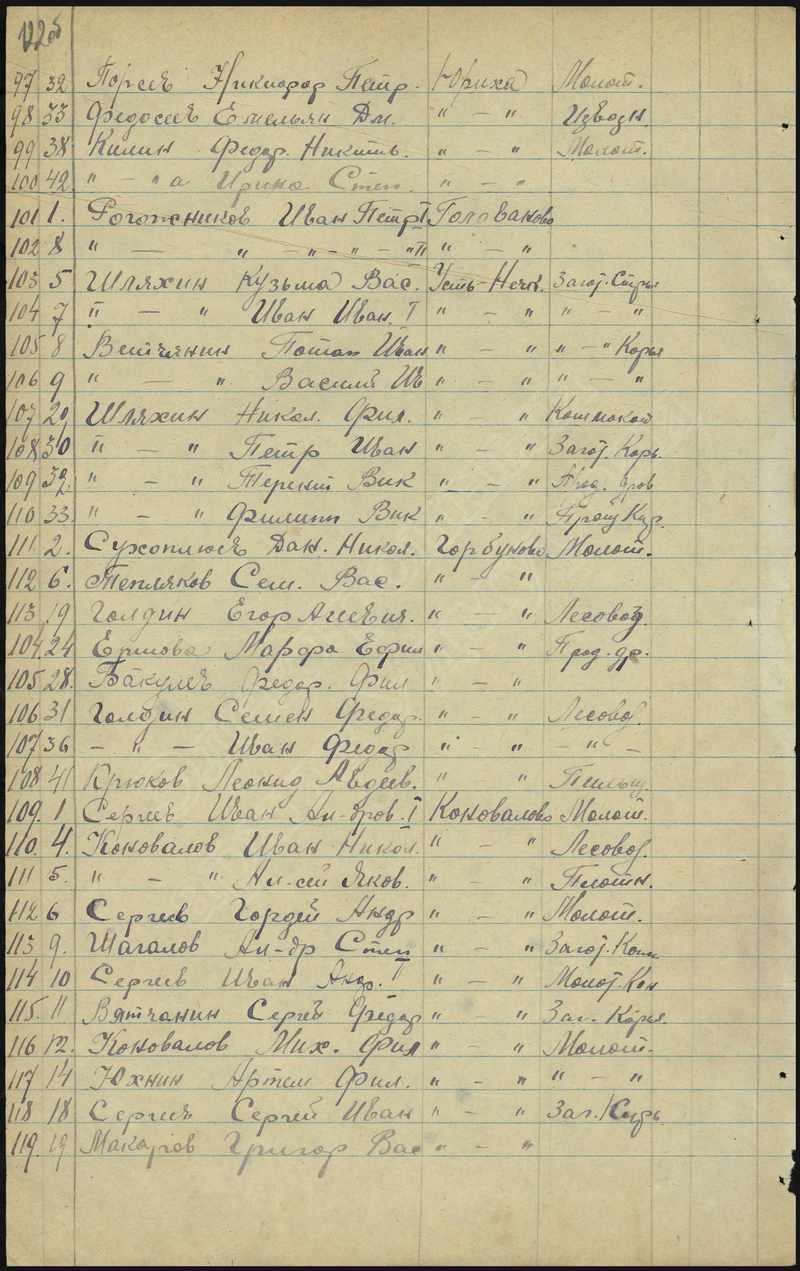 97 32 Порсев Никифор Петр. Юриха Молот.
98 33 Федосеев Емельян Дм. " — " Извозн.
99 38 Килин Федор. Никит. " — " Молот.
100 42. " — " а Ирина Степ. " — "
101 1. Рогожников Иван Петр I Голованово
102 8 " — " — " — " — " II " — "
103 5 Шляхин Кузьма Вас. Усть-Нечк. Загот.
104 7 " — " Иван Иван. I " — " " — "
105 8 Вятчянин Потап Иван " — " " — " Корья
106 9 " — " Василий Ив " — " " — "
107 29 Шляхин Никол. Фил. " — "
108 30 " — " Петр Иван " — " Загот. Корь.
109 32. " — " Терентий Вик " — " Прод. дров
110 33. " — " Филипп Вик " — "
111 2. Сухоплюев Дан. Никол. Горбуново Молот.
112 6. Тепляков Сем. Вас. " — "
113 19 Голдин Егор " — " Лесовоз.
104. 24 Ершова Марфа Ефим " — " Прод. др.
105 28. Вакулев Федор. Фил " — "
106 31 Голдин Семен Федор. " — " Лесовоз.
107 36 — " — Иван Федор " — " — " —
108 41 Крюков Леонид Авдеев. " "
109. 1 Сергеев Иван Ал-дров. I Коновалово Молот.
110. 4. Коновалов Иван Никол. " — " Лесовоз.
111 5. " — " Ал-сей Яков. " — " Плотн.
112 6 Сергеев Гордей Андр " — " Молот.
113 9. Шагалов Ал-др Степ " — " Загот.
114 10 Сергеев Иван Андр. II " — " Молот.
115. 11 Вятчанин Сергей Федор " — " Заг. Корья.
116 12. Коновалов Мих. Фил " — " Молот.
117 14 Юхнин Артем Фил. " — " " — "
118 18 Сергеев Сергей Иван " — " Заг.
119. 19 Макаров Григор Вас " — "